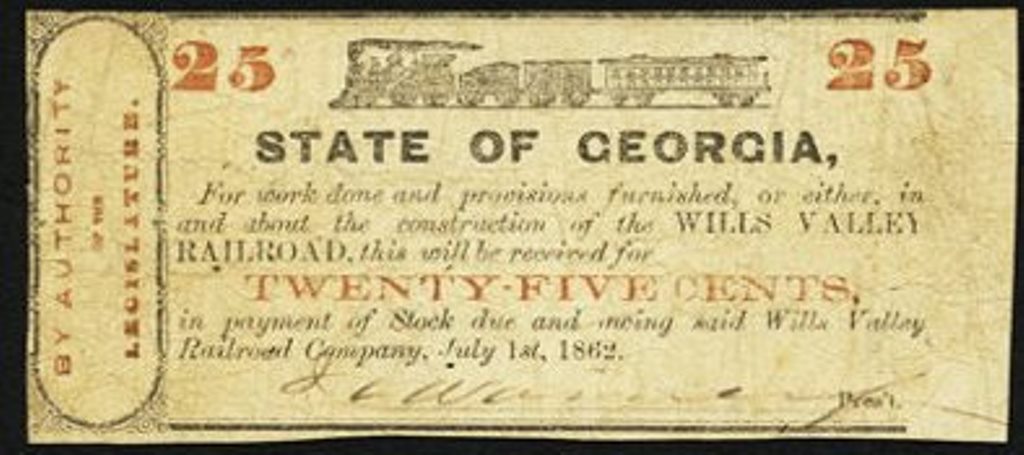 25 25
STATE OF GEORGIA,
For work done and provisions furnished, or either, in
and about the construction of the WILLS VALLEY
RAILROAD, this will be received for
TWENTY-FIVE CENTS,
in payment of Stock due and owing said Wills Valley
Railroad Company, July 1st, 1862.
Pres't.
BY AUTHORITY
OF THE
LEGISLATURE.